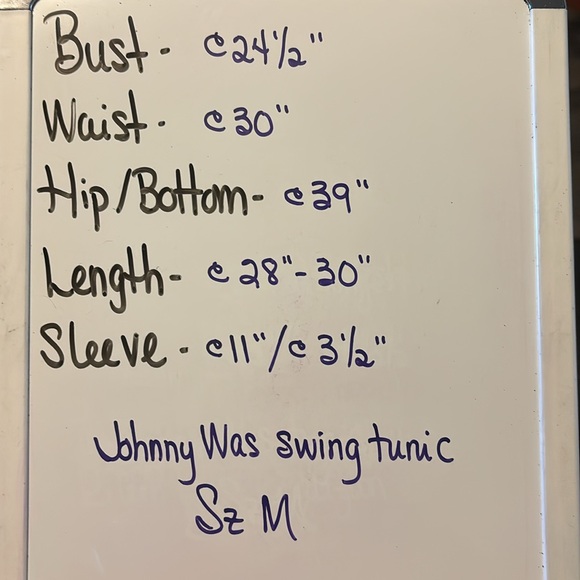 Bust - c24½"
Waist - c30"
Hip/Bottom - c39"
Length - c28"-30"
Sleeve - c11"/c3½"
Johnny Was swing tunic
Sz M